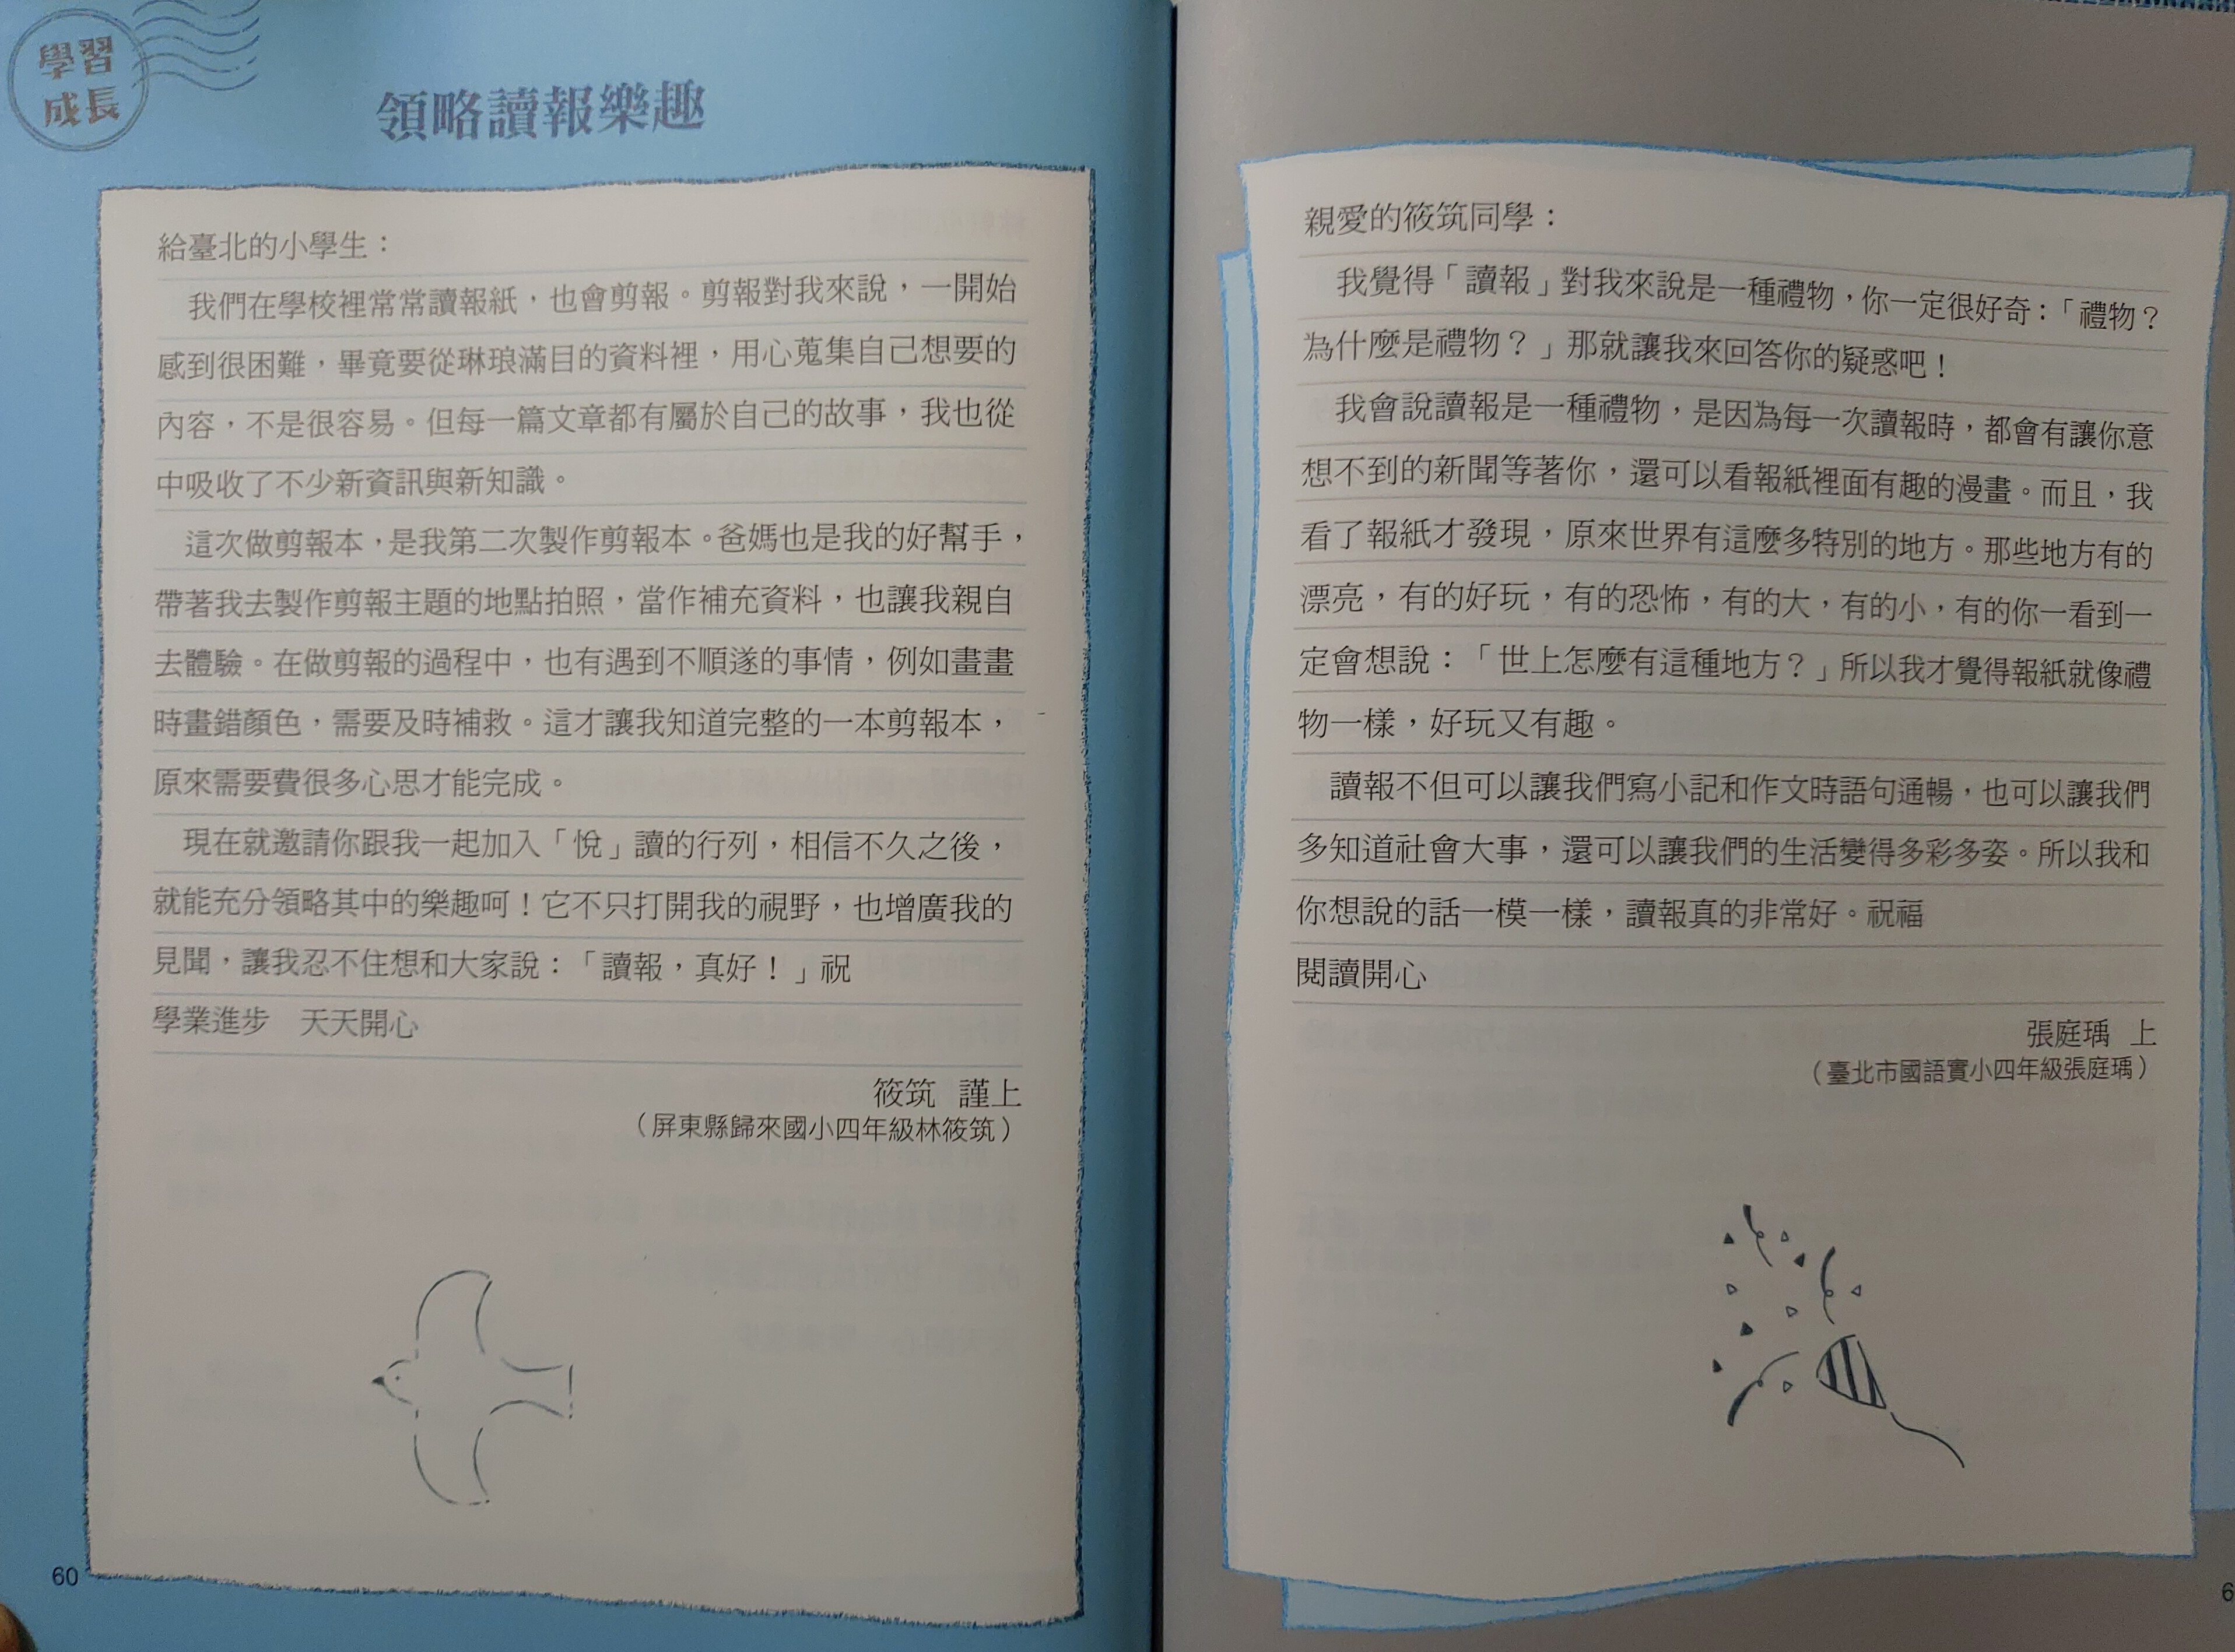 學習
成長
領略讀報樂趣
給臺北的小學生：
我們在學校裡常常讀報紙，也會剪報。剪報對我來說，一開始
感到很困難，畢竟要從琳琅滿目的資料裡，用心蒐集自己想要的
內容，不是很容易。但每一篇文章都有屬於自己的故事，我也從
中吸收了不少新資訊與新知識。
這次做剪報本，是我第二次製作剪報本。爸媽也是我的好幫手，
帶著我去製作剪報主題的地點拍照，當作補充資料，也讓我親自
去體驗。在做剪報的過程中，也有遇到不順遂的事情，例如畫畫
時畫錯顏色，需要及時補救。這才讓我知道完整的一本剪報本，
原來需要費很多心思才能完成。
現在就邀請你跟我一起加入「悅」讀的行列，相信不久之後，
就能充分領略其中的樂趣呵！它不只打開我的視野，也增廣我的
見聞，讓我忍不住想和大家說：「讀報，真好！」祝
學業進步　天天開心
筱筑　謹上
（屏東縣歸來國小四年級林筱筑）
60
親愛的筱筑同學：
我覺得「讀報」對我來說是一種禮物，你一定很好奇：「禮物？
為什麼是禮物？」那就讓我來回答你的疑惑吧！
我會說讀報是一種禮物，是因為每一次讀報時，都會有讓你意
想不到的新聞等著你，還可以看報紙裡面有趣的漫畫。而且，我
看了報紙才發現，原來世界有這麼多特別的地方。那些地方有的
漂亮，有的好玩，有的恐怖，有的大，有的小，有的你一看到一
定會想說：「世上怎麼有這種地方？」所以我才覺得報紙就像禮
物一樣，好玩又有趣。
讀報不但可以讓我們寫小記和作文時語句通暢，也可以讓我們
多知道社會大事，還可以讓我們的生活變得多彩多姿。所以我和
你想說的話一模一樣，讀報真的非常好。祝福
閱讀開心
張庭瑀　上
（臺北市國語實小四年級張庭瑀）